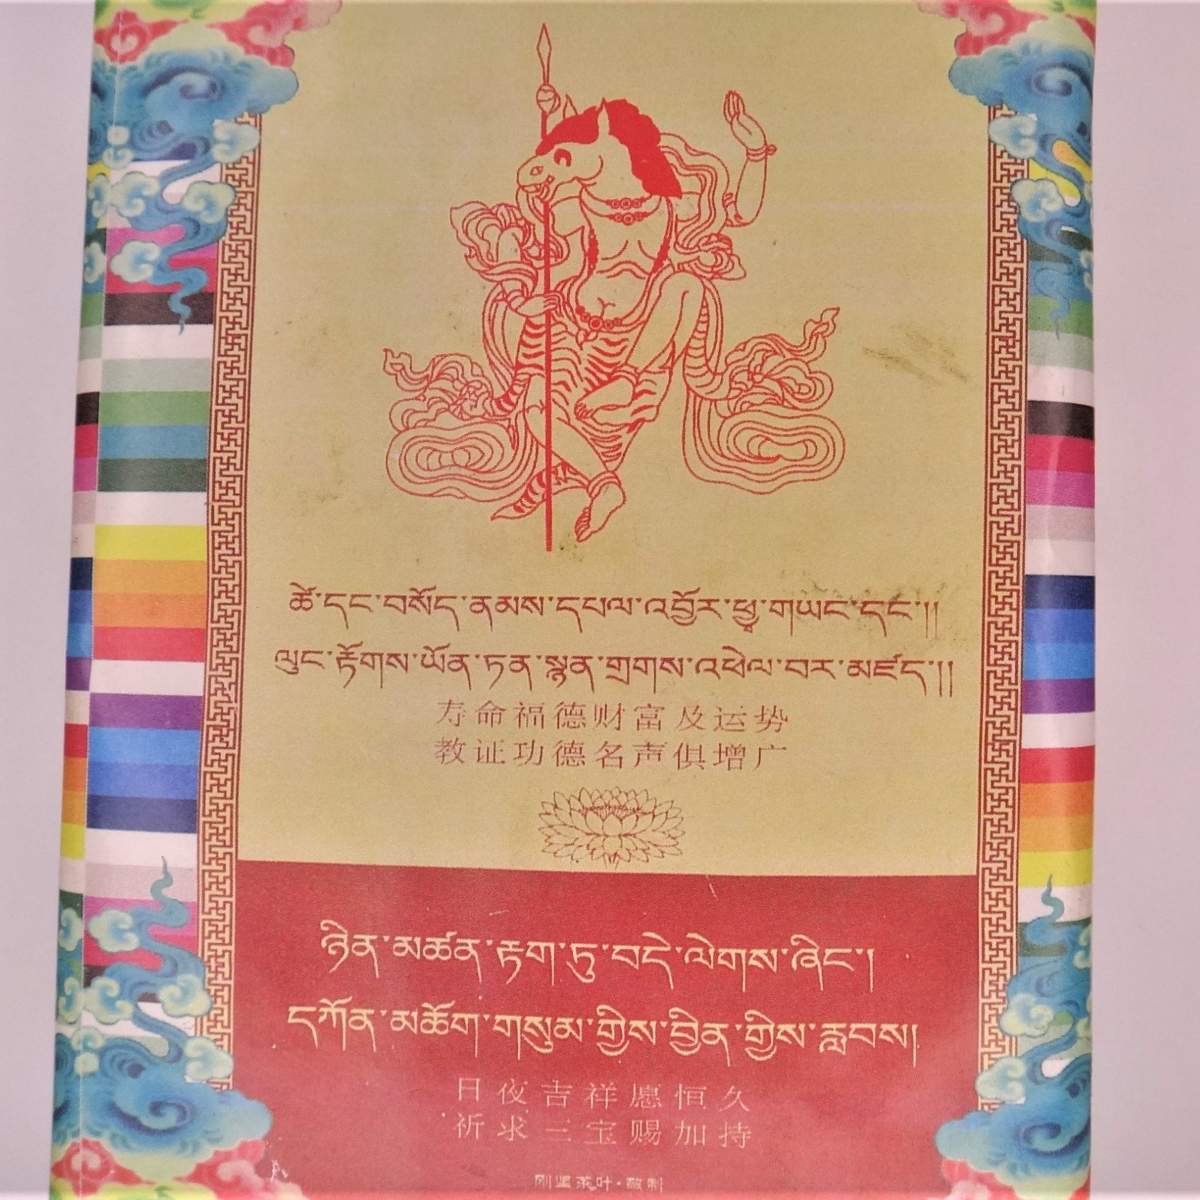 ཚེ་དང་བསོད་ནམས་དཔལ་འབྱོར་ཕྱྭ་གཡང་དང་།།
ལུང་རྟོགས་ཡོན་ཏན་སྙན་གྲགས་འཕེལ་བར་མཛད་།།
寿命福德财富及运势
教证功德名声俱增广
ཉིན་མཚན་རྟག་ཏུ་བདེ་ལེགས་ཞིང་།
དཀོན་མཆོག་གསུམ་གྱིས་བྱིན་གྱིས་རླབས།
日夜吉祥愿恒久
祈求三宝赐加持
刚坚茶叶·敬制